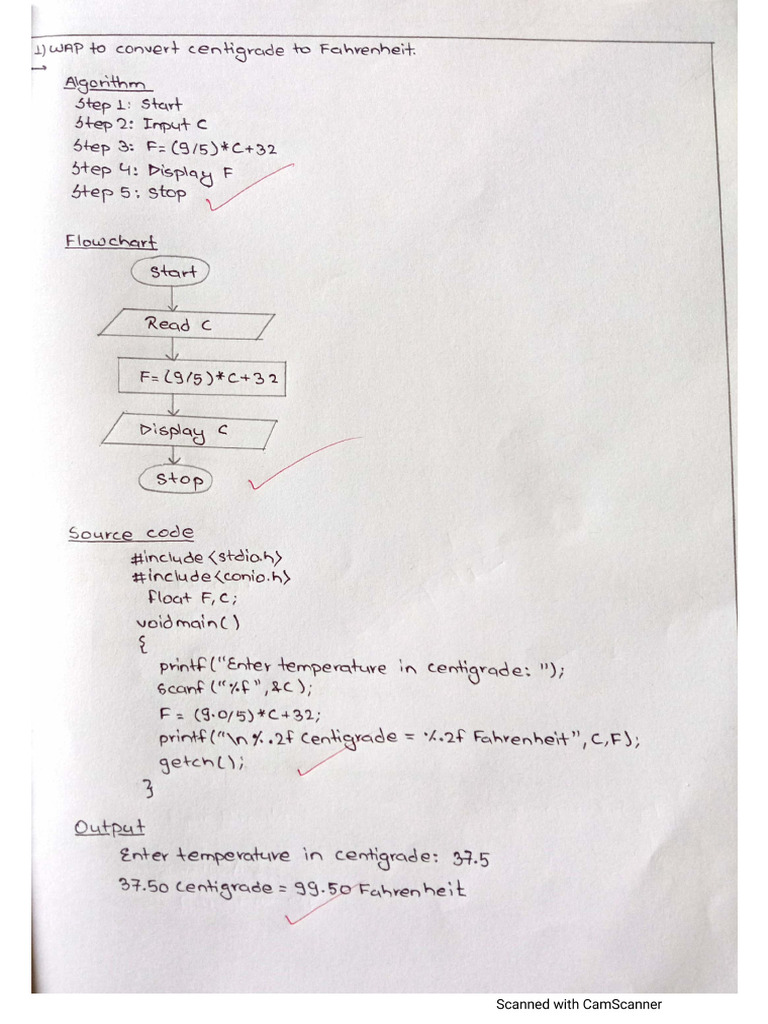 1) WAP to convert centigrade to Fahrenheit.
→
Algorithm
Step 1: Start
Step 2: Input C
Step 3: F=(9/5)*C+32
Step 4: Display F
Step 5: Stop
Flowchart
Start
Read C
F=(9/5)*C+32
Display C
Stop
Source code
#include<stdio.h>
#include<conio.h>
float F,C;
void main()
{
printf("Enter temperature in centigrade: ");
scanf("%f",&C);
F = (9.0/5)*C+32;
printf("\n%.2f Centigrade = %.2f Fahrenheit",C,F);
getch();
}
Output
Enter temperature in centigrade: 37.5
37.50 Centigrade = 99.50 Fahrenheit
Scanned with CamScanner